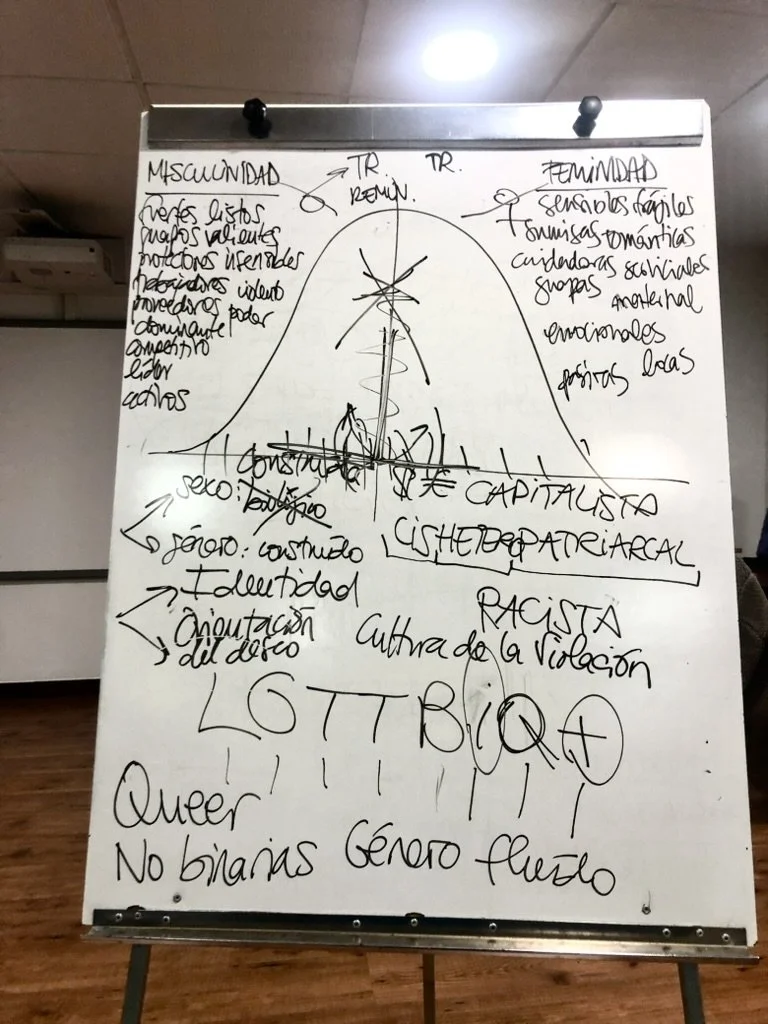 MASCULINIDAD
TR. TR.
FEMINIDAD
fuertes listos
guapos valientes
protectores insensibles
trabajadores violento
proveedores poder
dominante
competitivo
líder
activos
sensibles frágiles
sumisas románticas
cuidadoras
guapas maternal
emocionales
locas
construido
sexo: biológico
género: construido
Identidad
Orientación
del deseo
$ € CAPITALISTA
CISHETEROPATRIARCAL
RACISTA
Cultura de la Violación
LGTTBiQ+
Queer
No binarias Género fluido